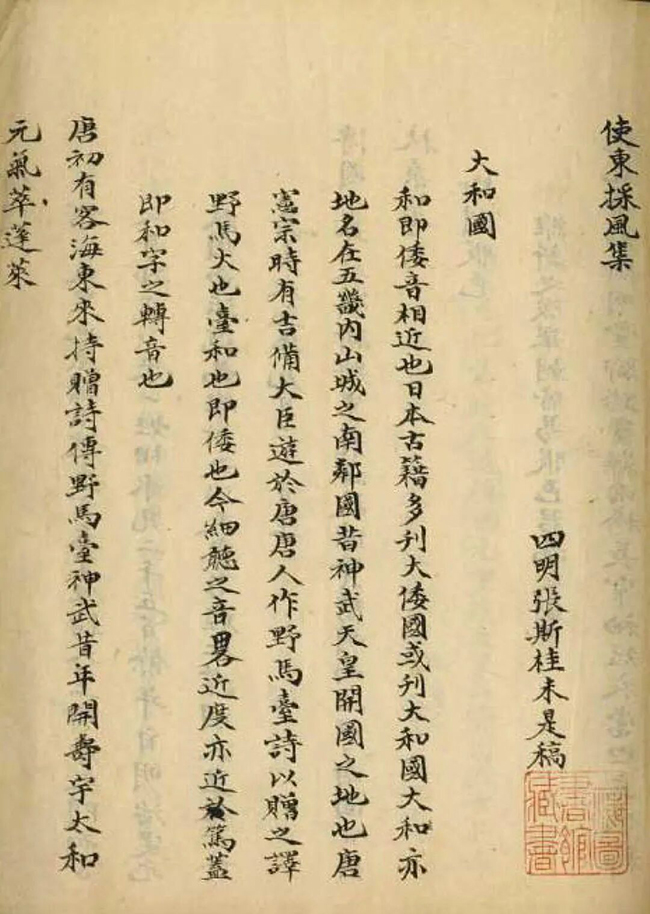 使東採風集
四明張斯桂未是稿
大和國
和即倭音相近也日本古籍多刋大倭國或刋大和國大和亦
地名在五畿內山城之南鄰國昔神武天皇開國之地也唐
憲宗時有吉備大臣遊於唐唐人作野馬臺詩以贈之譯
野馬大也臺和也即倭也今細聽之音畧近度亦近於篤蓋
即和字之轉音也
唐初有客海東來持贈詩傳野馬臺神武昔年開壽宇太和
元氣萃蓬萊
上海圖
書館
藏書